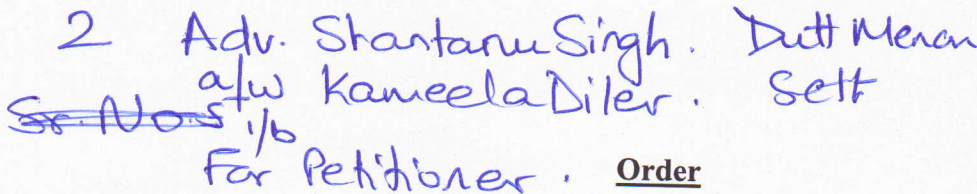 2 Adv. Shantanu Singh. Dutt Menon
a/w Kameela Diler. Sett
Sr. No. 5 i/b
For Petitioner. Order